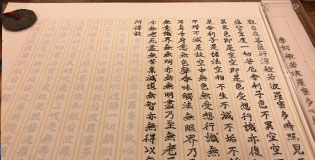 摩訶般若波羅蜜多
觀自在菩薩行深般若波羅蜜多時照見
蘊皆空度一切苦厄舍利子色不異空空
異色色即是空空即是色受想行識亦復
是舍利子是諸法空相不生不滅不
不增不減是故空中無色無受想行識無
耳鼻舌身意無色聲香味觸法無眼界乃
無意識界無無明亦無無明盡乃至無老
亦無老死盡無苦集滅道無智亦無得以無
所得故